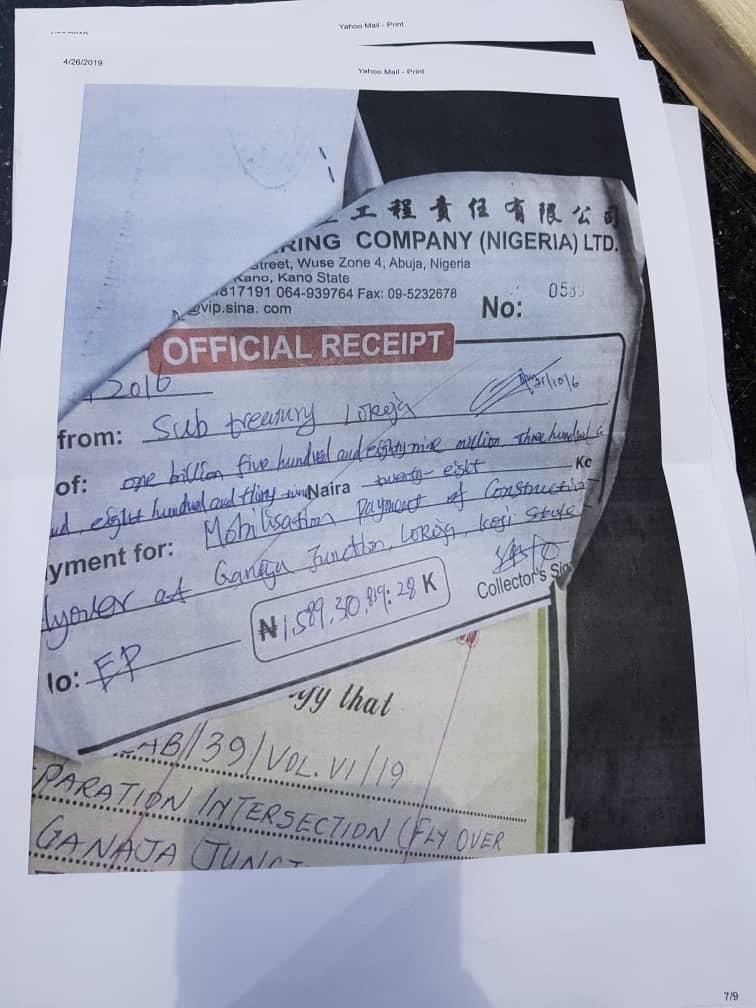 Yahoo Mail - Print
4/26/2019
Yahoo Mail - Print
工程責任有限公司
RING COMPANY (NIGERIA) LTD.
Street, Wuse Zone 4, Abuja, Nigeria
Kano, Kano State
817191 064-939764 Fax: 09-5232678
@vip.sina. com
No:
OFFICIAL RECEIPT
2016
from: Sub treasury Lokoja
of: one billion five hundred and eighty nine million three hundred
eight hundred and thirty Naira twenty-eight Ko
yment for: Mobilisation Payment of Constructio
lyover at Ganaja Junction, Lokoja, Kogi State
Collector's Sig
lo: EP
yy that
AB/39/VOL.VI/19
PARATION INTERSECTION (FLY OVER
GANAJA JUNCT
7/9